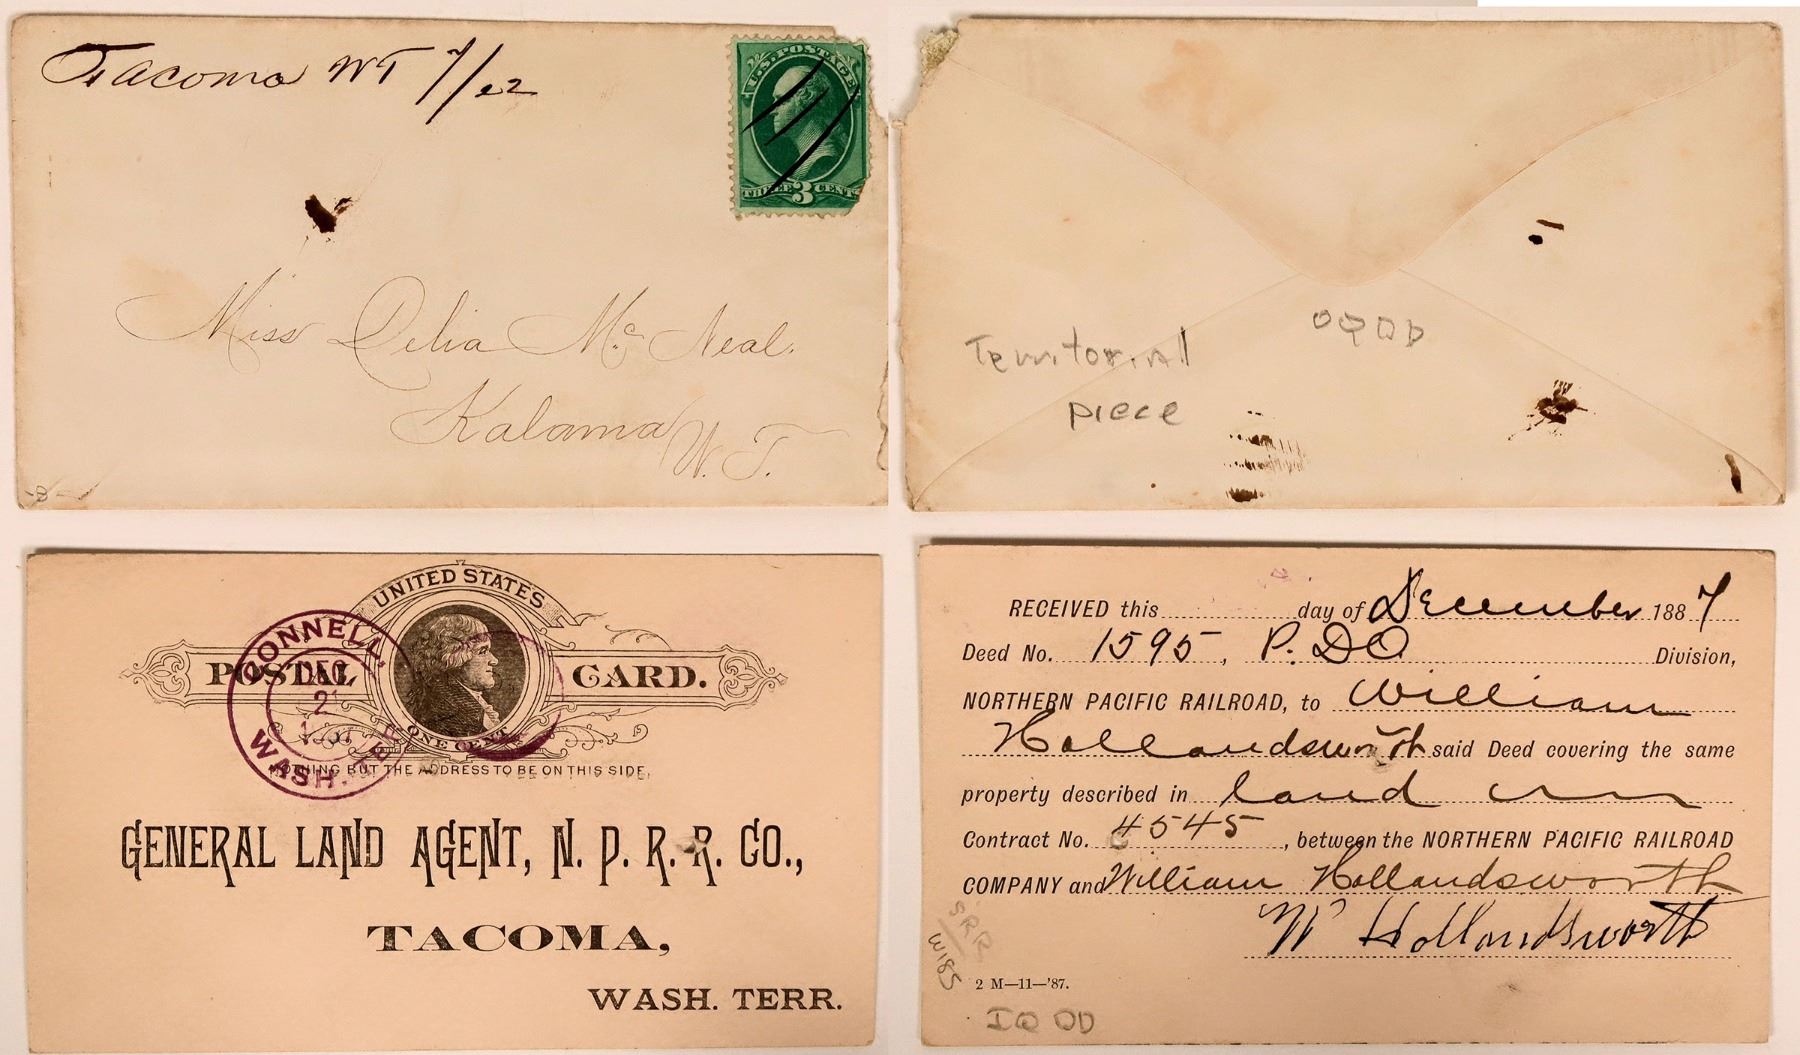 Tacoma WT 7/22
U.S. POSTAGE
THREE 3 CENTS
Miss Delia McNeal.
Kalama W. T.
Territoriall
piece
UNITED STATES
POSTAL CARD.
ONE CENT
NOTHING BUT THE ADDRESS TO BE ON THIS SIDE.
CONNELL,
DEC
WASH. TER.
GENERAL LAND AGENT, N. P. R. R. CO.,
TACOMA,
WASH. TERR.
RECEIVED this day of December 1887
Deed No. 1595, P. DO Division,
NORTHERN PACIFIC RAILROAD, to William
Hollandsworth said Deed covering the same
property described in land
Contract No. 4545, between the NORTHERN PACIFIC RAILROAD
COMPANY and William Hollandsworth
W Hollandsworth
SRR
W185
2 M—11—'87.